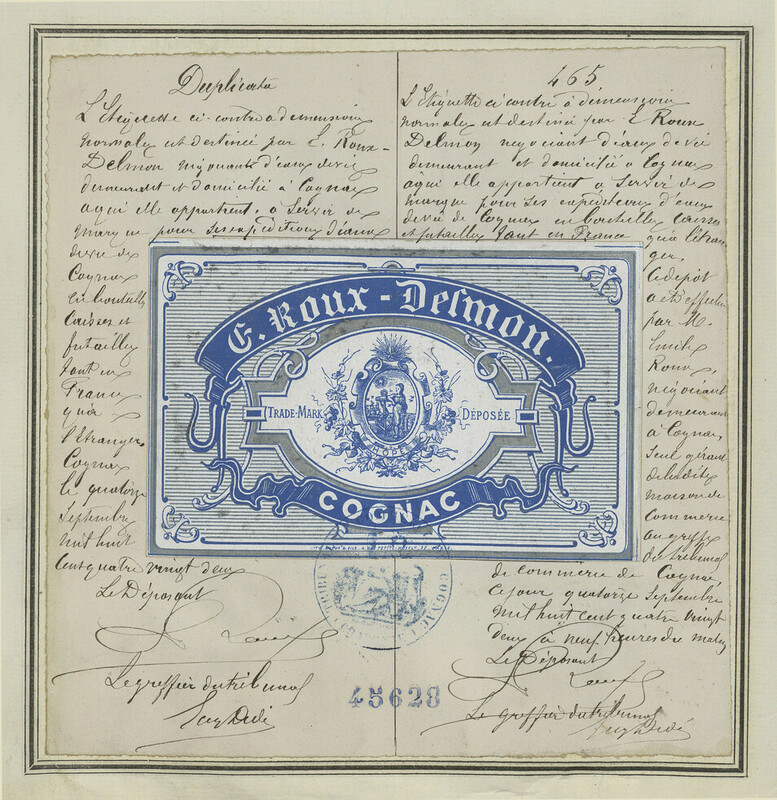 Duplicata
L'Etiquette ci-contre à dimensions
normales est destinée par E. Roux-
Delmon négociants d'eaux de vie
demeurant et domicilié à Cognac
à qui elle appartient, à servir de
marque pour ses expéditions d'eaux
de vie de
Cognac
en bouteilles
Caisses et
futailles
tant en
France
qu'à
l'Etranger,
Cognac
le quatorze
Septembre
mil huit
Cent quatre vingt deux
Le Déposant
Le greffier du tribunal
465
L'Etiquette ci contre à dimensions
normales est destinée par E. Roux
Delmon négociant d'eaux de vie
demeurant et domicilié à Cognac
à qui elle appartient à servir de
marque pour ses expéditions d'eaux
de vie de Cognac en bouteilles caisses
et futailles tant en France qu'à l'étran
ger,
Ce dépôt
a été effectué
par M.
Emile
Roux,
négociant
demeurant
à Cognac,
Seul gérant
de la dite
maison de
Commerce
au greffe
du tribunal
de commerce de Cognac,
Ce jour quatorze Septembre
mil huit cent quatre vingt
deux à neuf heures du matin
Le Déposant
Le greffier du tribunal
E. Roux-Delmon.
TRADE-MARK
DÉPOSÉE
COGNAC
45628